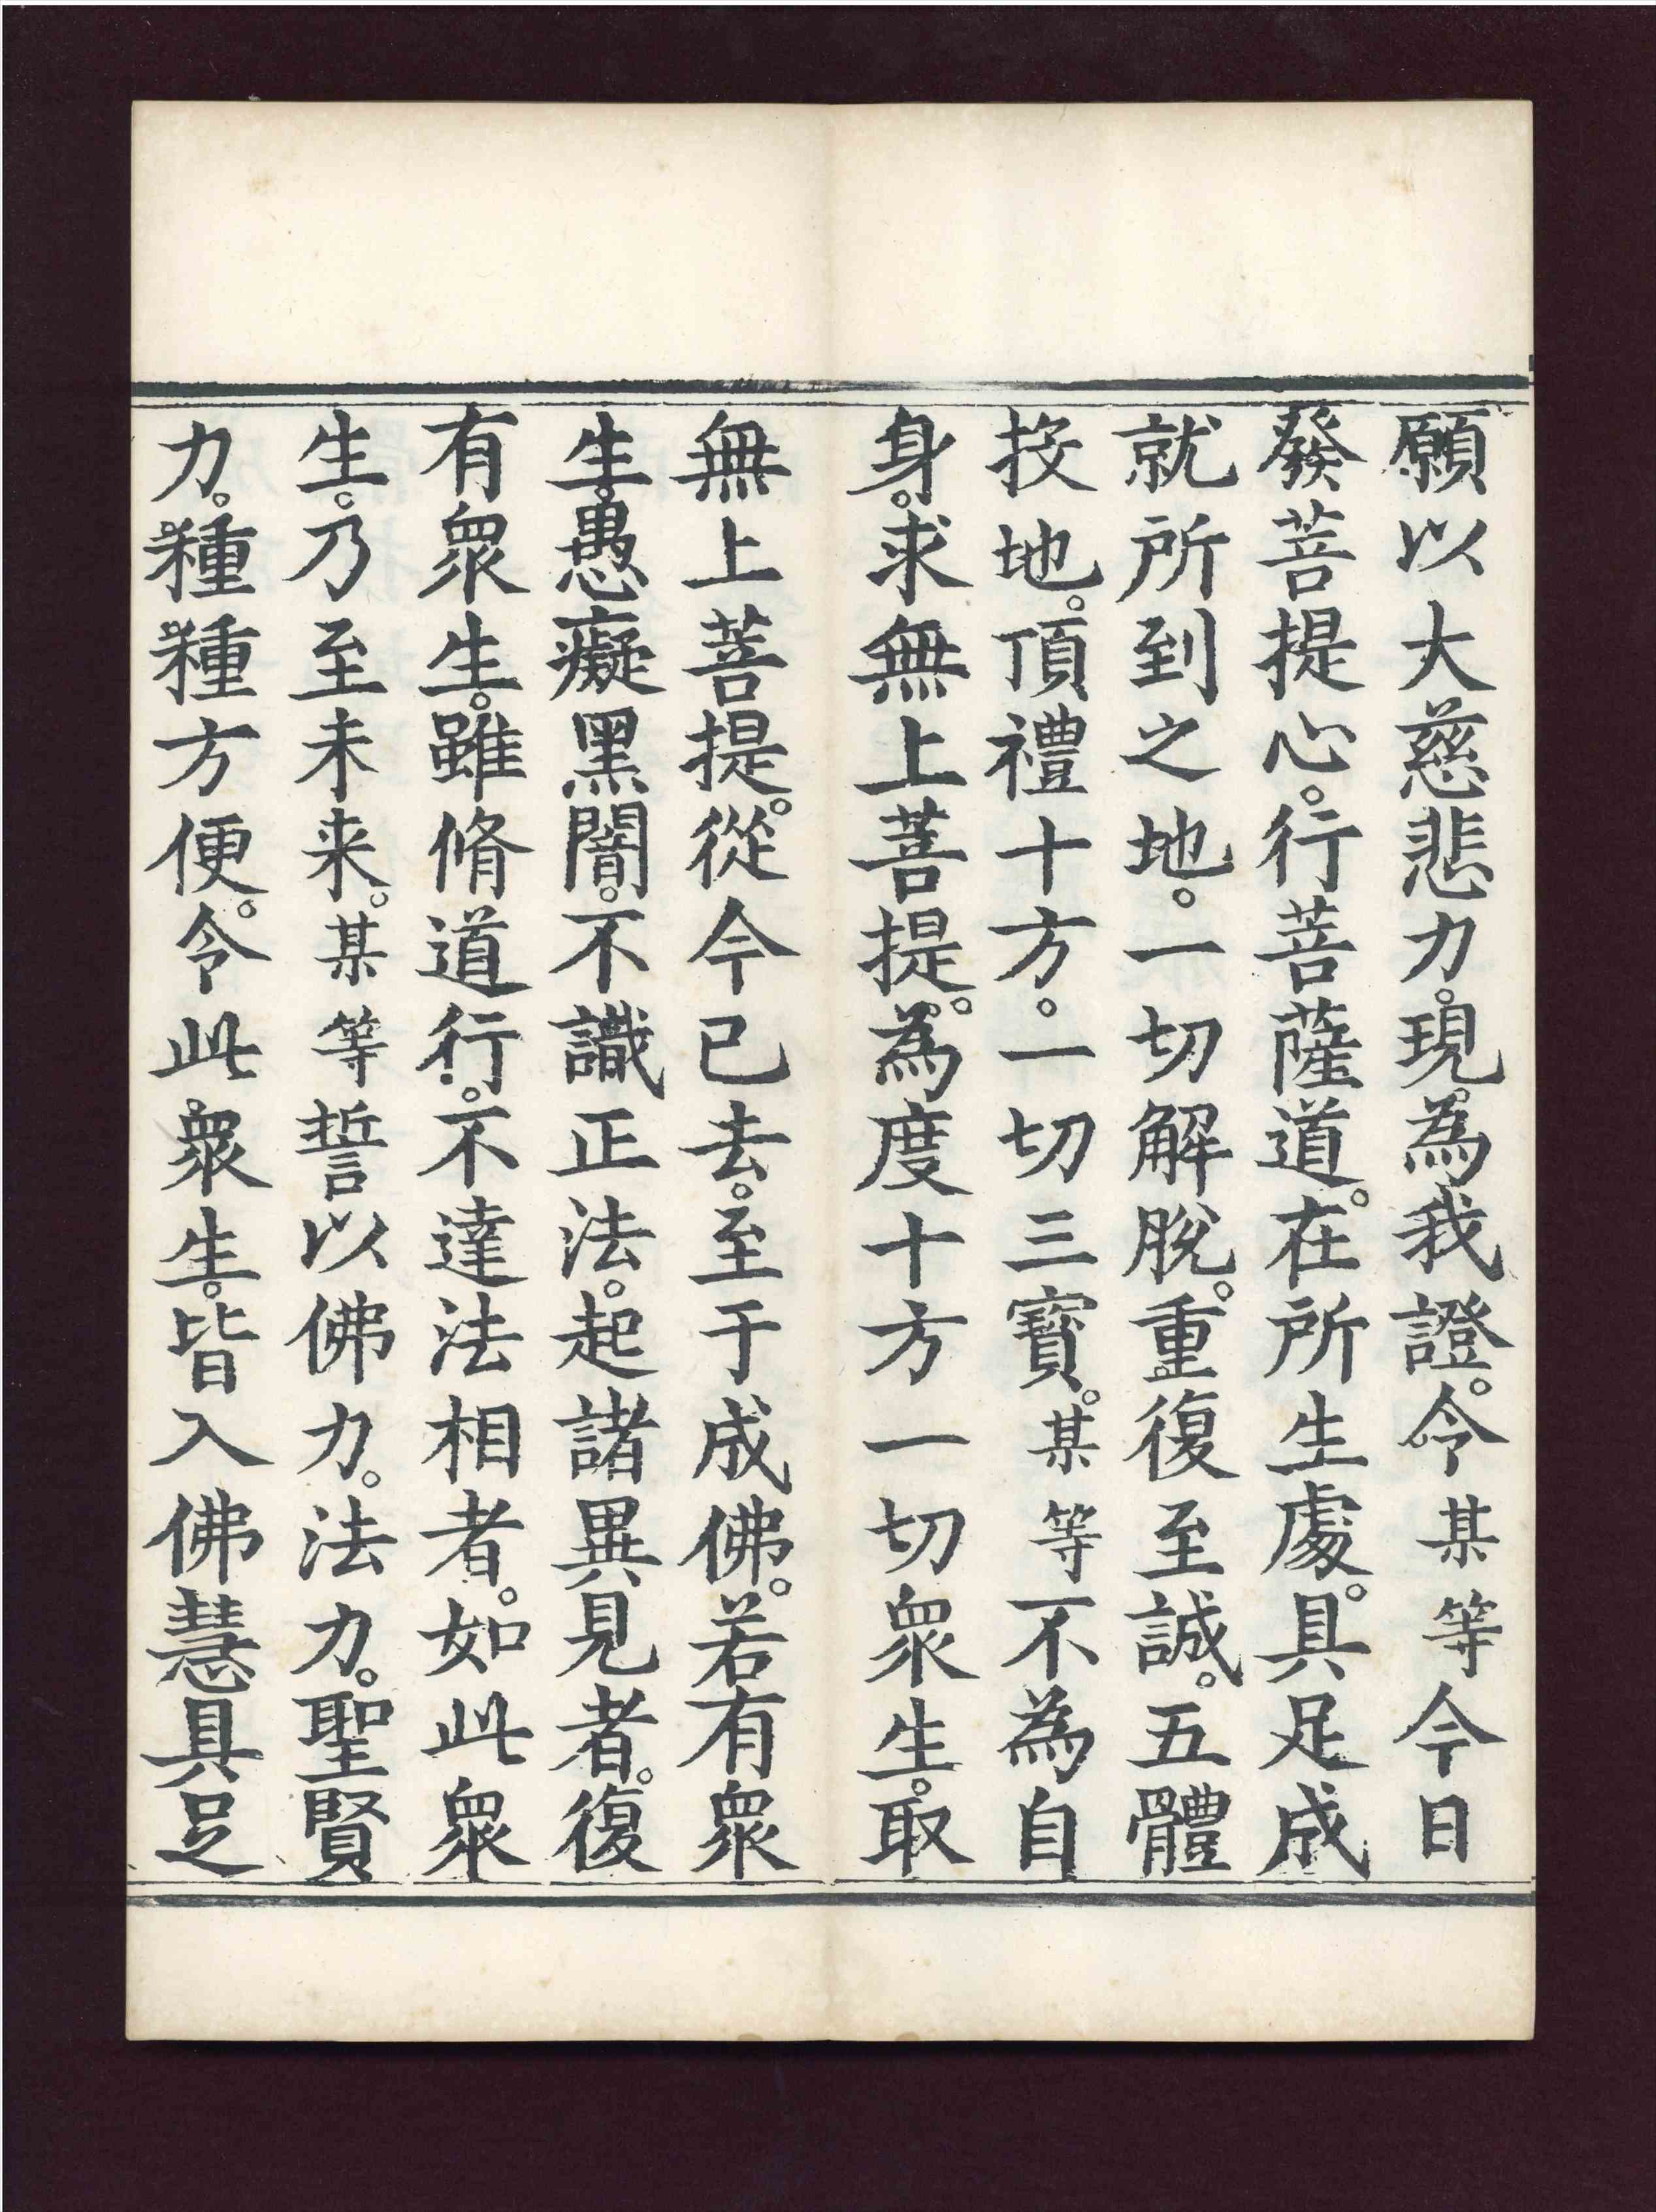 願以大慈悲力。現為我證。令某等今日
發菩提心。行菩薩道。在所生處。具足成
就所到之地。一切解脫。重復至誠。五體
投地。頂禮十方。一切三寶。某等不為自
身。求無上菩提。為度十方一切眾生。取
無上菩提。從今已去。至于成佛。若有眾
生。愚癡黑闇。不識正法。起諸異見者。復
有眾生。雖脩道行。不達法相者。如此眾
生。乃至未来。某等誓以佛力。法力。聖賢
力。種種方便。令此眾生。皆入佛慧具足